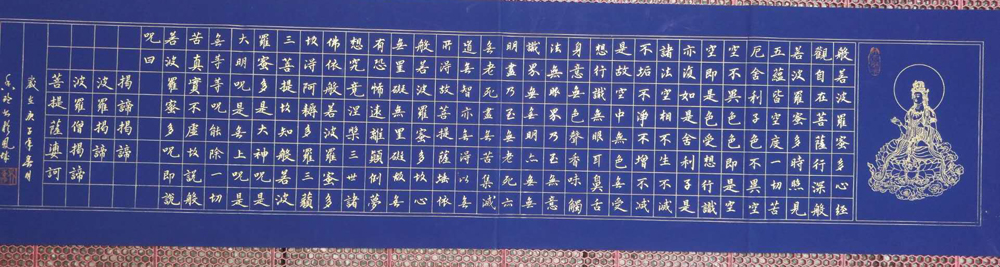 般若波羅蜜多心經
觀自在菩薩行深般
若波羅蜜多時照見
五蘊皆空度一切苦
厄舍利子色不異空
空不異色色即是空
空即是色受想行識
亦復如是舍利子是
諸法空相不生不滅
不垢不淨不增不減
是故空中無色無受
想行識無眼耳鼻舌
身意無色聲香味觸
法無眼界乃至無意
識界無無明亦無無
明盡乃至無老死亦
無老死盡無苦集滅
道無智亦無得以無
所得故菩提薩埵依
般若波羅蜜多故心
無罣礙無罣礙故無
有恐怖遠離顛倒夢
想究竟涅槃三世諸
佛依般若波羅蜜多
故得阿耨多羅三藐
三菩提故知般若波
羅蜜多是大神呪是
大明呪是無上呪是
無等等呪能除一切
苦真實不虛故說般
若波羅蜜多呪即說
呪曰
揭諦揭諦
波羅揭諦
波羅僧揭諦
菩提薩婆訶
歲在庚子年